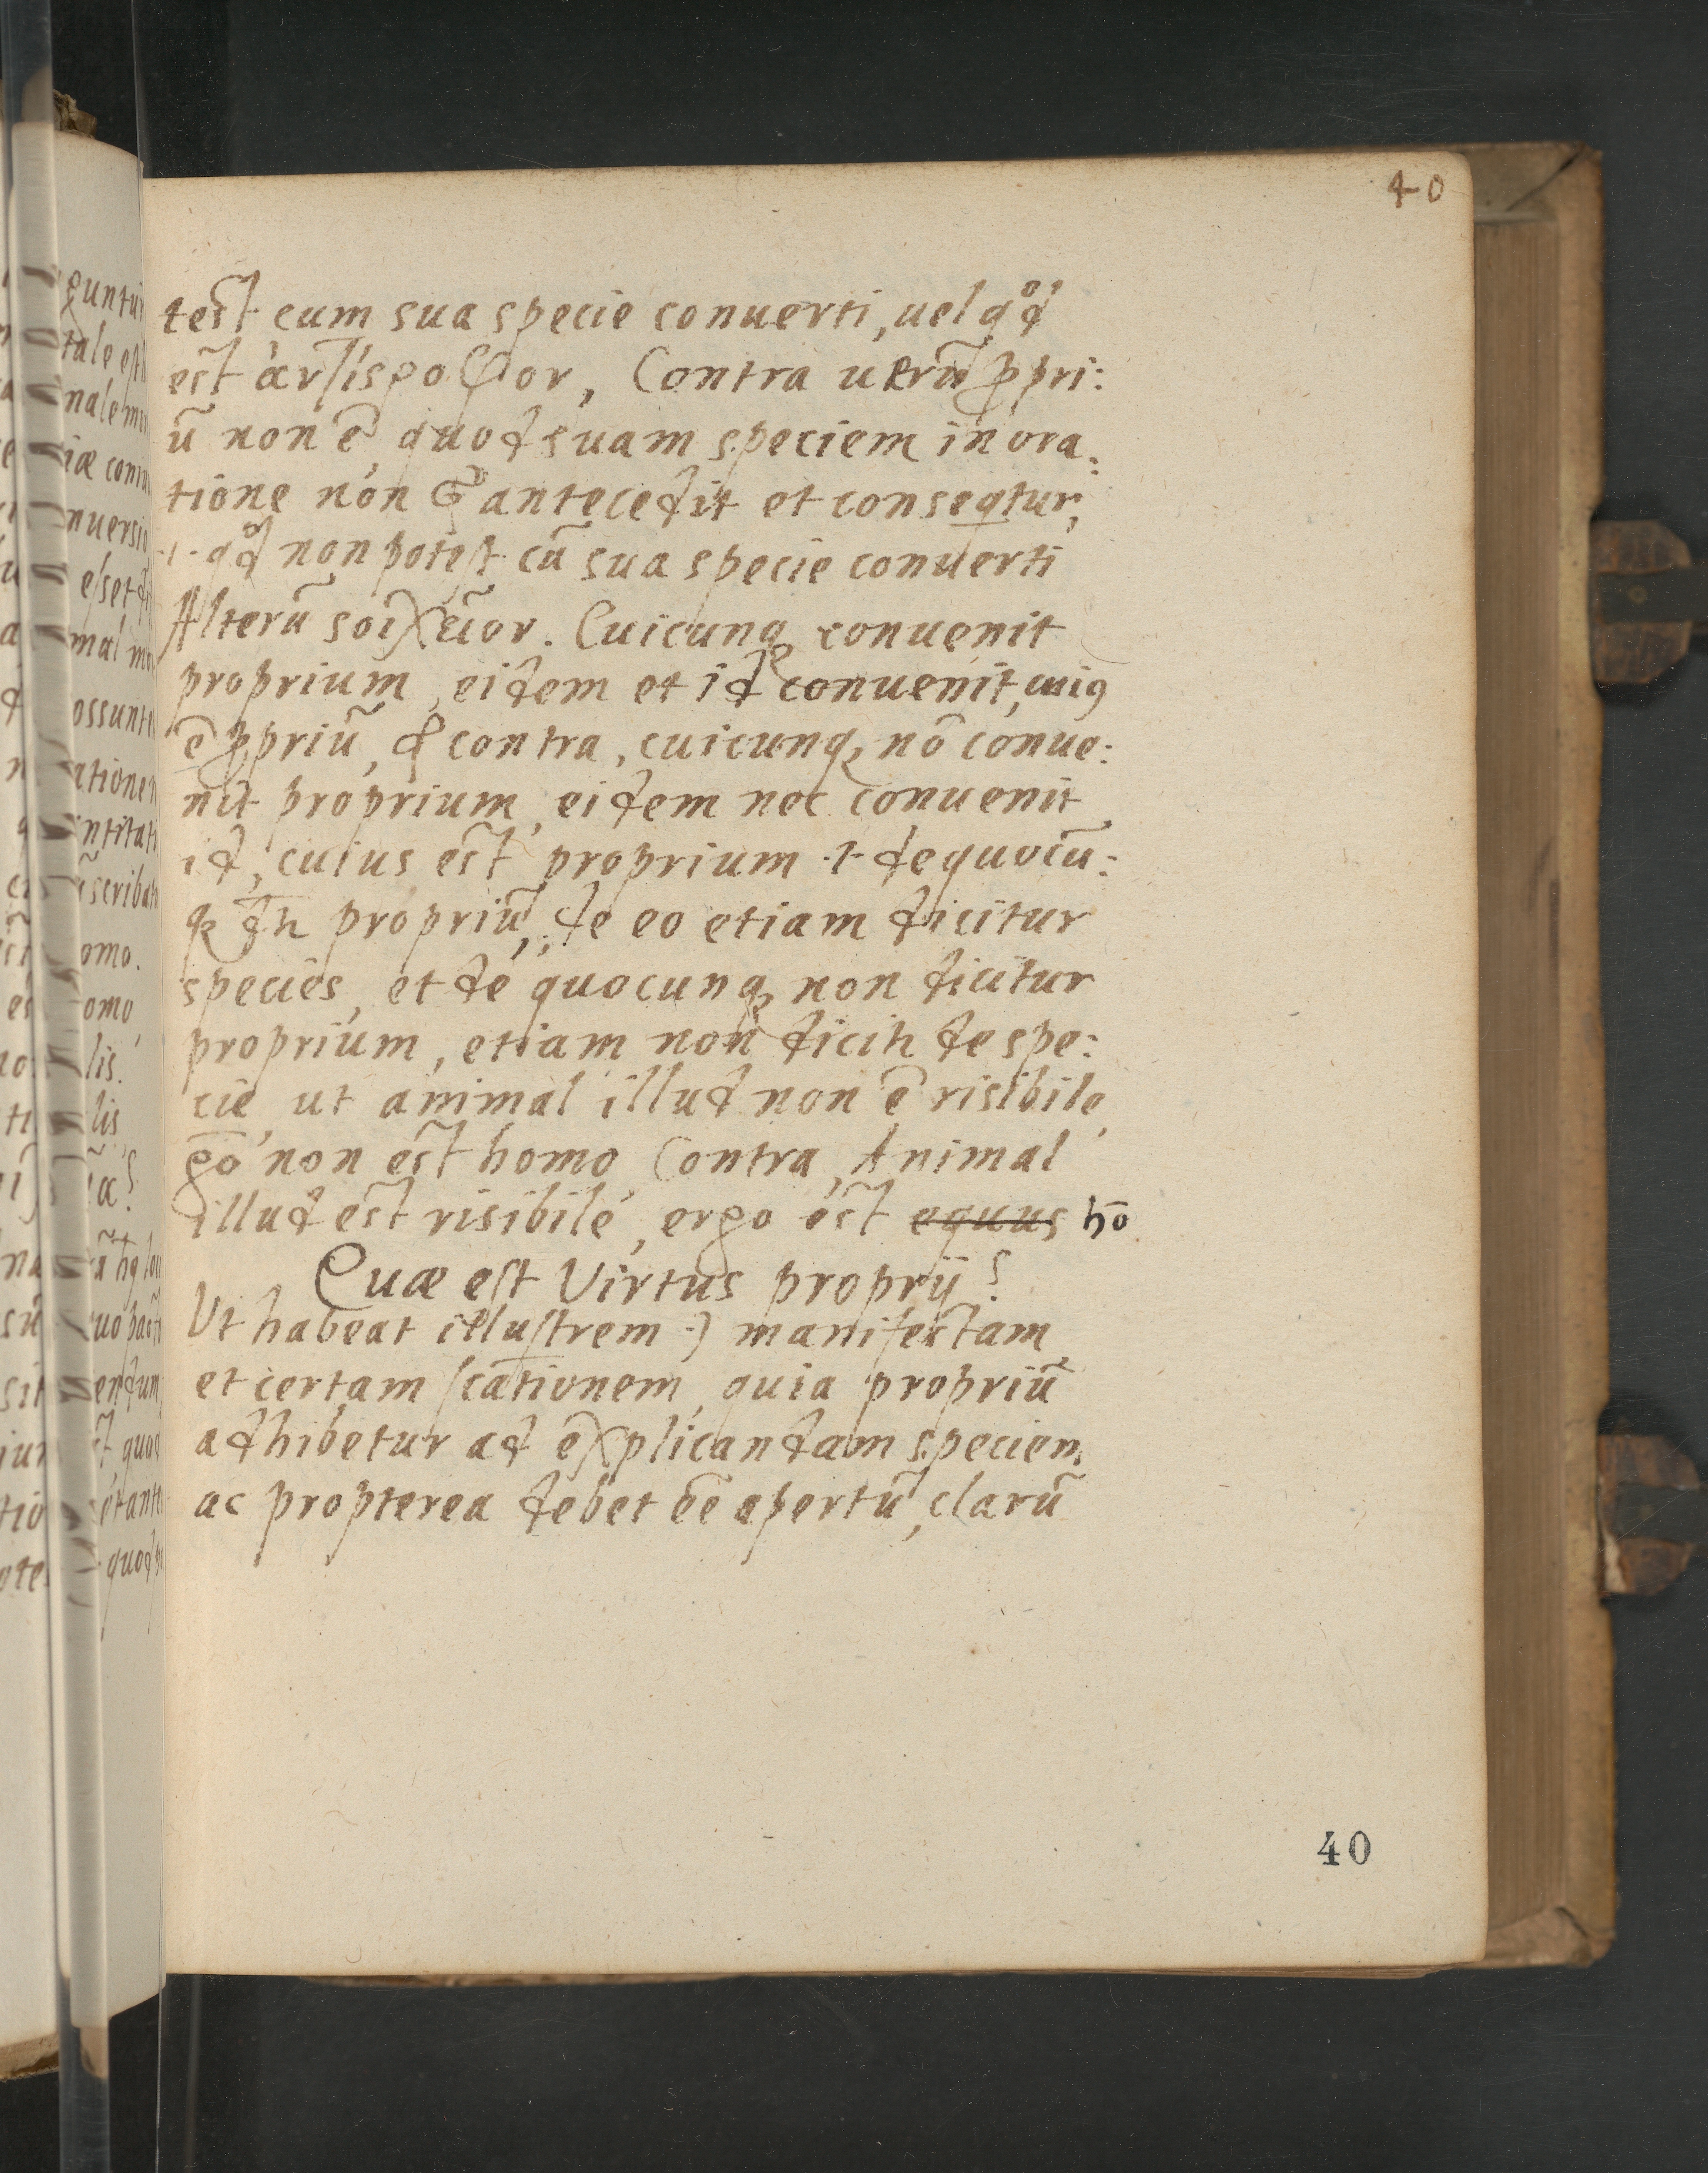 40
test cum sua specie conuerti, uel qd
est Contra uerũ ꝓpri:
ũ non ẽ quod suam speciem in ora:
tione non antecedit et conseqtur,
·i· qd non potest cũ sua specie conuerti
Alterũ Cuicunq convenit
proprium, eidem et id convenit, cuiꝰ
ẽ ꝓpriũ, contra, cuicunq nõ conue:
nit proprium, eidem nec convenit
id, cuius est proprium ·i· de quocũ:
q dr propriũ, de eo etiam dicitur
species, et de quocunq non dicitur
proprium, etiam non dicitr de spe:
cie, ut animal illud non ẽ risibile,
go non est homo Contra, Animal
illud est risibile, ergo est equus hõ
Quæ est Virtus proprij?
Ut habeat illustrem ·) manifestam
et certam scationem, quia propriũ
adhibetur ad explicandam speciem
ac propterea debet ẽe apertũ, clarũ
40